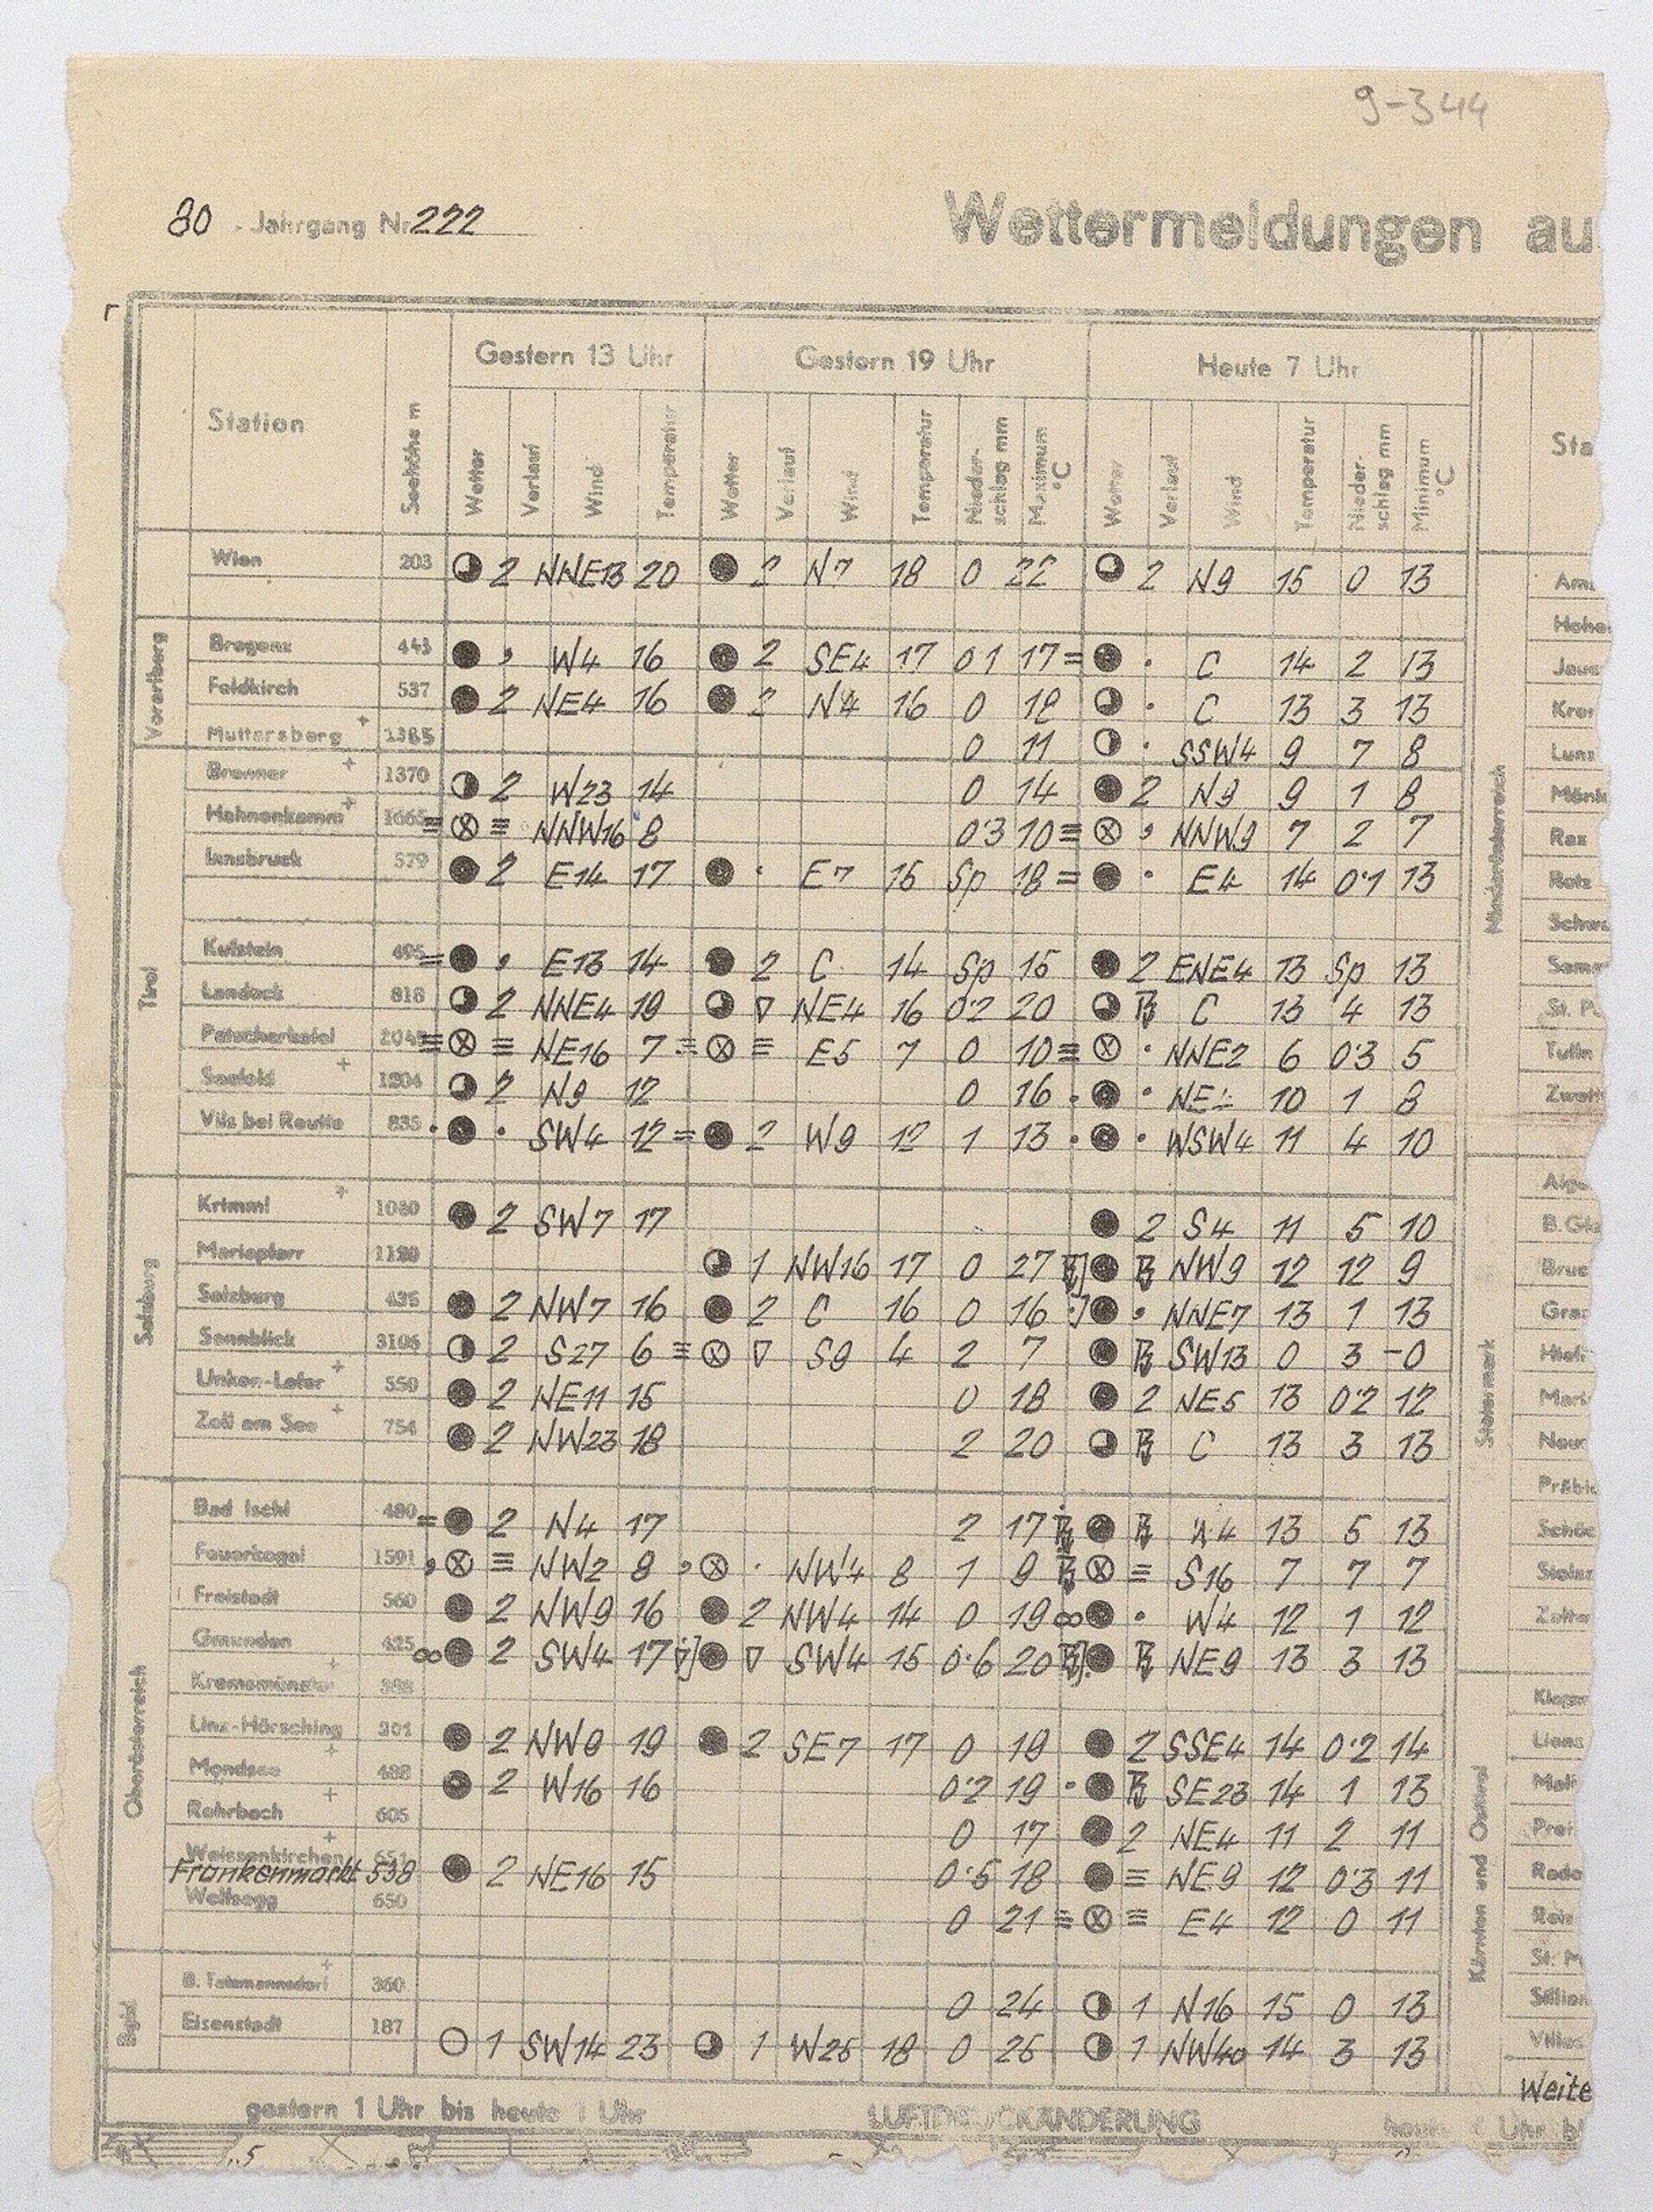 9-344
80. Jahrgang Nr 222
Wettermeldungen au
Station Seehöhe m Gestern 13 Uhr Gestern 19 Uhr Heute 7 Uhr Sta
Wetter Verlauf Wind Temperatur Wetter Verlauf Wind Temperatur Nieder-schlag mm Maximum °C Wetter Verlauf Wind Temperatur Nieder-schlag mm Minimum °C
Wien 203 2 NNE13 20 2 N7 18 0 22 2 N9 15 0 13
Vorarlberg
Bregenz 443 , W4 16 2 SE4 17 01 17 = • C 14 2 13
Feldkirch 537 2 NE4 16 2 N4 16 0 18 • C 13 3 13
Muttersberg + 1385 0 11 • SSW4 9 7 8
Tirol
Brenner + 1370 2 W23 14 0 14 2 N9 9 1 8
Hahnenkamm + 1665 ≡ ⊗ ≡ NNW16 8 0·3 10 ≡ ⊗ , NNW9 7 2 7
Innsbruck 579 2 E14 17 • E7 15 Sp 18 = • E4 14 0·1 13
Kufstein 495 = , E13 14 2 C 14 Sp 15 2 ENE4 13 Sp 13
Landeck 818 2 NNE4 19 ▽ NE4 16 02 20 C 13 4 13
Patscherkofel 2045 ≡ ⊗ ≡ NE16 7 ≡ ⊗ ≡ E5 7 0 10 ≡ ⊗ • NNE2 6 0·3 5
Seefeld + 1204 2 N9 12 0 16 • • 10 1 8
Vils bei Reutte 835 • • SW4 12 = 2 W9 12 1 13 • • WSW4 11 4 10
Salzburg
Krimml + 1080 2 SW7 17 2 S4 11 5 10
Mariapfarr 1120 1 NW16 17 0 27 NW9 12 12 9
Salzburg 435 2 NW7 16 2 C 16 0 16 •] • NNE7 13 1 13
Sonnblick 3106 2 S27 6 ≡ ⊗ ▽ S9 4 2 7 SW13 0 3 -0
Unken-Lofer + 550 2 NE11 15 0 18 2 NE5 13 02 12
Zell am See + 754 2 NW23 18 2 20 C 13 3 13
Oberösterreich
Bad Ischl 480 = 2 N4 17 2 17 13 5 13
Feuerkogel 1591 , ⊗ ≡ NW2 8 , ⊗ • NW4 8 1 9 ⊗ ≡ S16 7 7 7
Freistadt 560 2 NW9 16 2 NW4 14 0 19 ∞ • W4 12 1 12
Gmunden 425 ∞ 2 SW4 17 ▽] ▽ SW4 15 0·6 20 NE9 13 3 13
Kremsmünster + 388
Linz-Hörsching 301 2 NW9 19 2 SE7 17 0 19 2 SSE4 14 0·2 14
Mondsee + 488 2 W16 16 0·2 19 • SE23 14 1 13
Rohrbach + 605 0 17 2 NE4 11 2 11
Weissenkirchen + 651
Frankenmarkt 538 2 NE16 15 0·5 18 ≡ NE9 12 0·3 11
Wolfsegg 650 0 21 ≡ ⊗ ≡ E4 12 0 11
Bgld
B. Tatzmannsdorf + 360 0 24 1 N16 15 0 13
Eisenstadt 187 1 SW14 23 1 W25 18 0 25 1 NW40 14 3 13
Niederösterreich
Hohe
Kre
Lunz
Mönk
Rax
Retz
Schw
St. P
Tulln
Zwett
Steiermark
B.Gle
Bruc
Graz
Präbic
Schöc
Kärnten und Osttirol
Klagen
Lienz
Prei
Rade
Reis
St. P
Sillian
Villac
Weite
gestern 1 Uhr bis heute 1 Uhr LUFTDRUCKÄNDERUNG heute Uhr bi